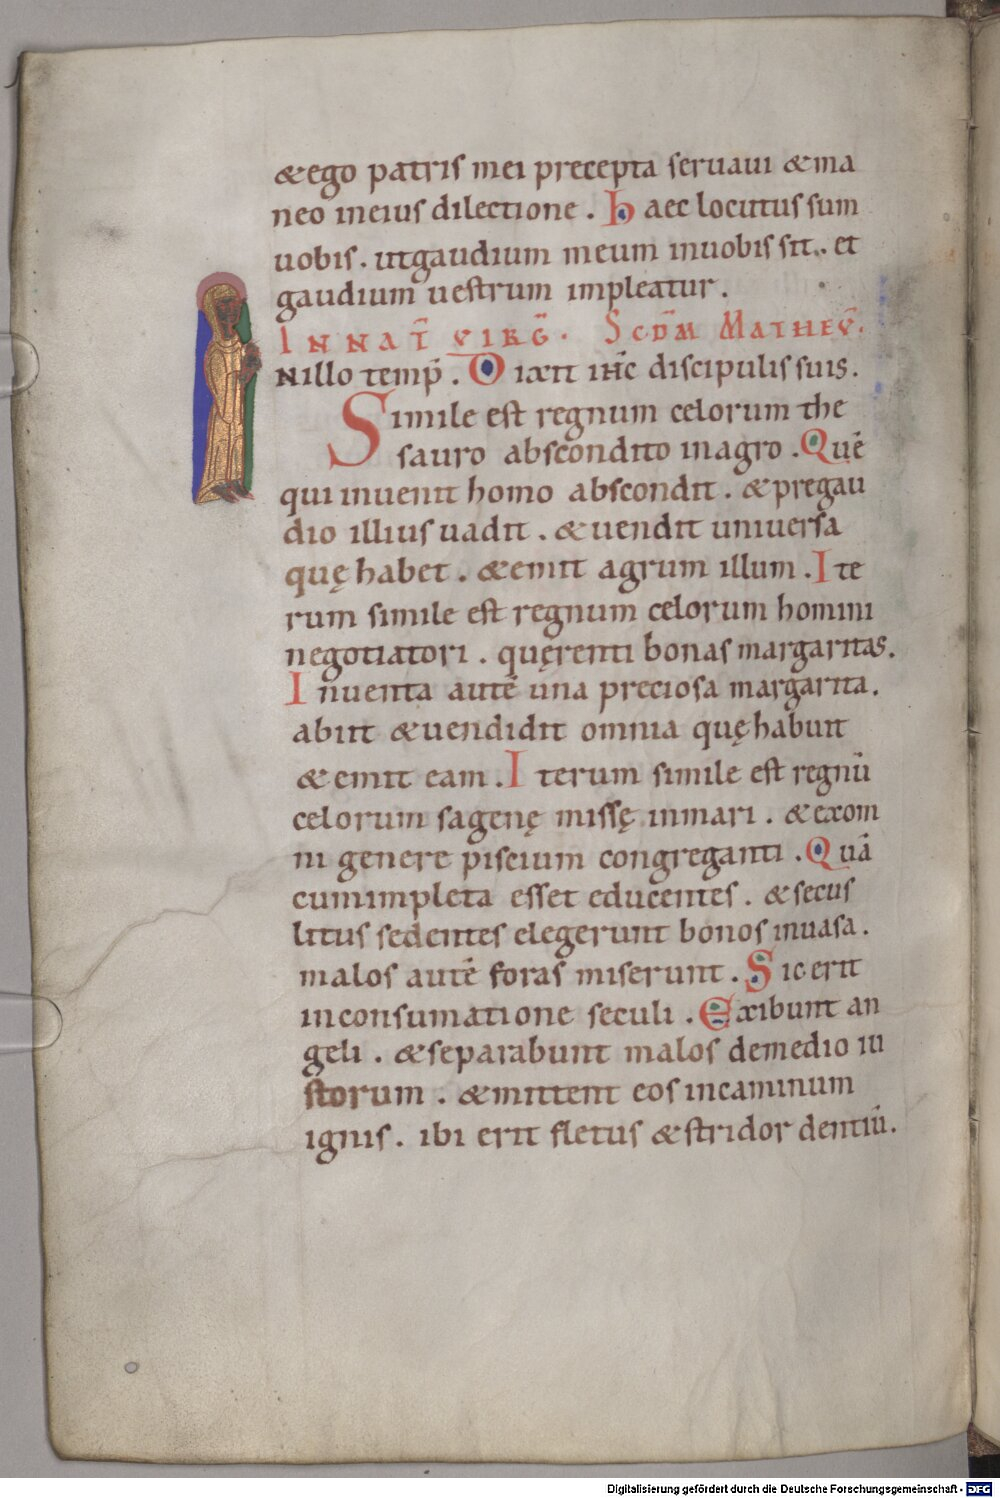 &ego patris mei precepta seruaui &ma
neo ineius dilectione . haec locutus sum
uobis . utgaudium meum inuobis sit . et
gaudium uestrum impleatur .
IN NAT̄ VIRḠ . SCDM̄ MATHEV̄ .
Nillo temp̄ . Dixit ih̄c discipulis suis .
Simile est regnum celorum the
sauro abscondito inagro . Quē
qui inuenit homo abscondit . &pregau
dio illius uadit . &uendit uniuersa
quę habet . &emit agrum illum . Ite
rum simile est regnum celorum homini
negotiatori . quęrenti bonas margaritas .
Inuenta autē una preciosa margarita .
abiit &uendidit omnia quę habuit
&emit eam . Iterum simile est regnū
celorum sagenę missę inmari . &exom
ni genere piscium congreganti . Quā
cumimpleta esset educentes . &secus
litus sedentes elegerunt bonos inuasa .
malos autē foras miserunt . Sic erit
inconsumatione seculi . Exibunt an
geli . &separabunt malos demedio iu
storum . &mittent eos incaminum
ignis . ibi erit fletus &stridor dentiū .
Digitalisierung gefördert durch die Deutsche Forschungsgemeinschaft - DFG